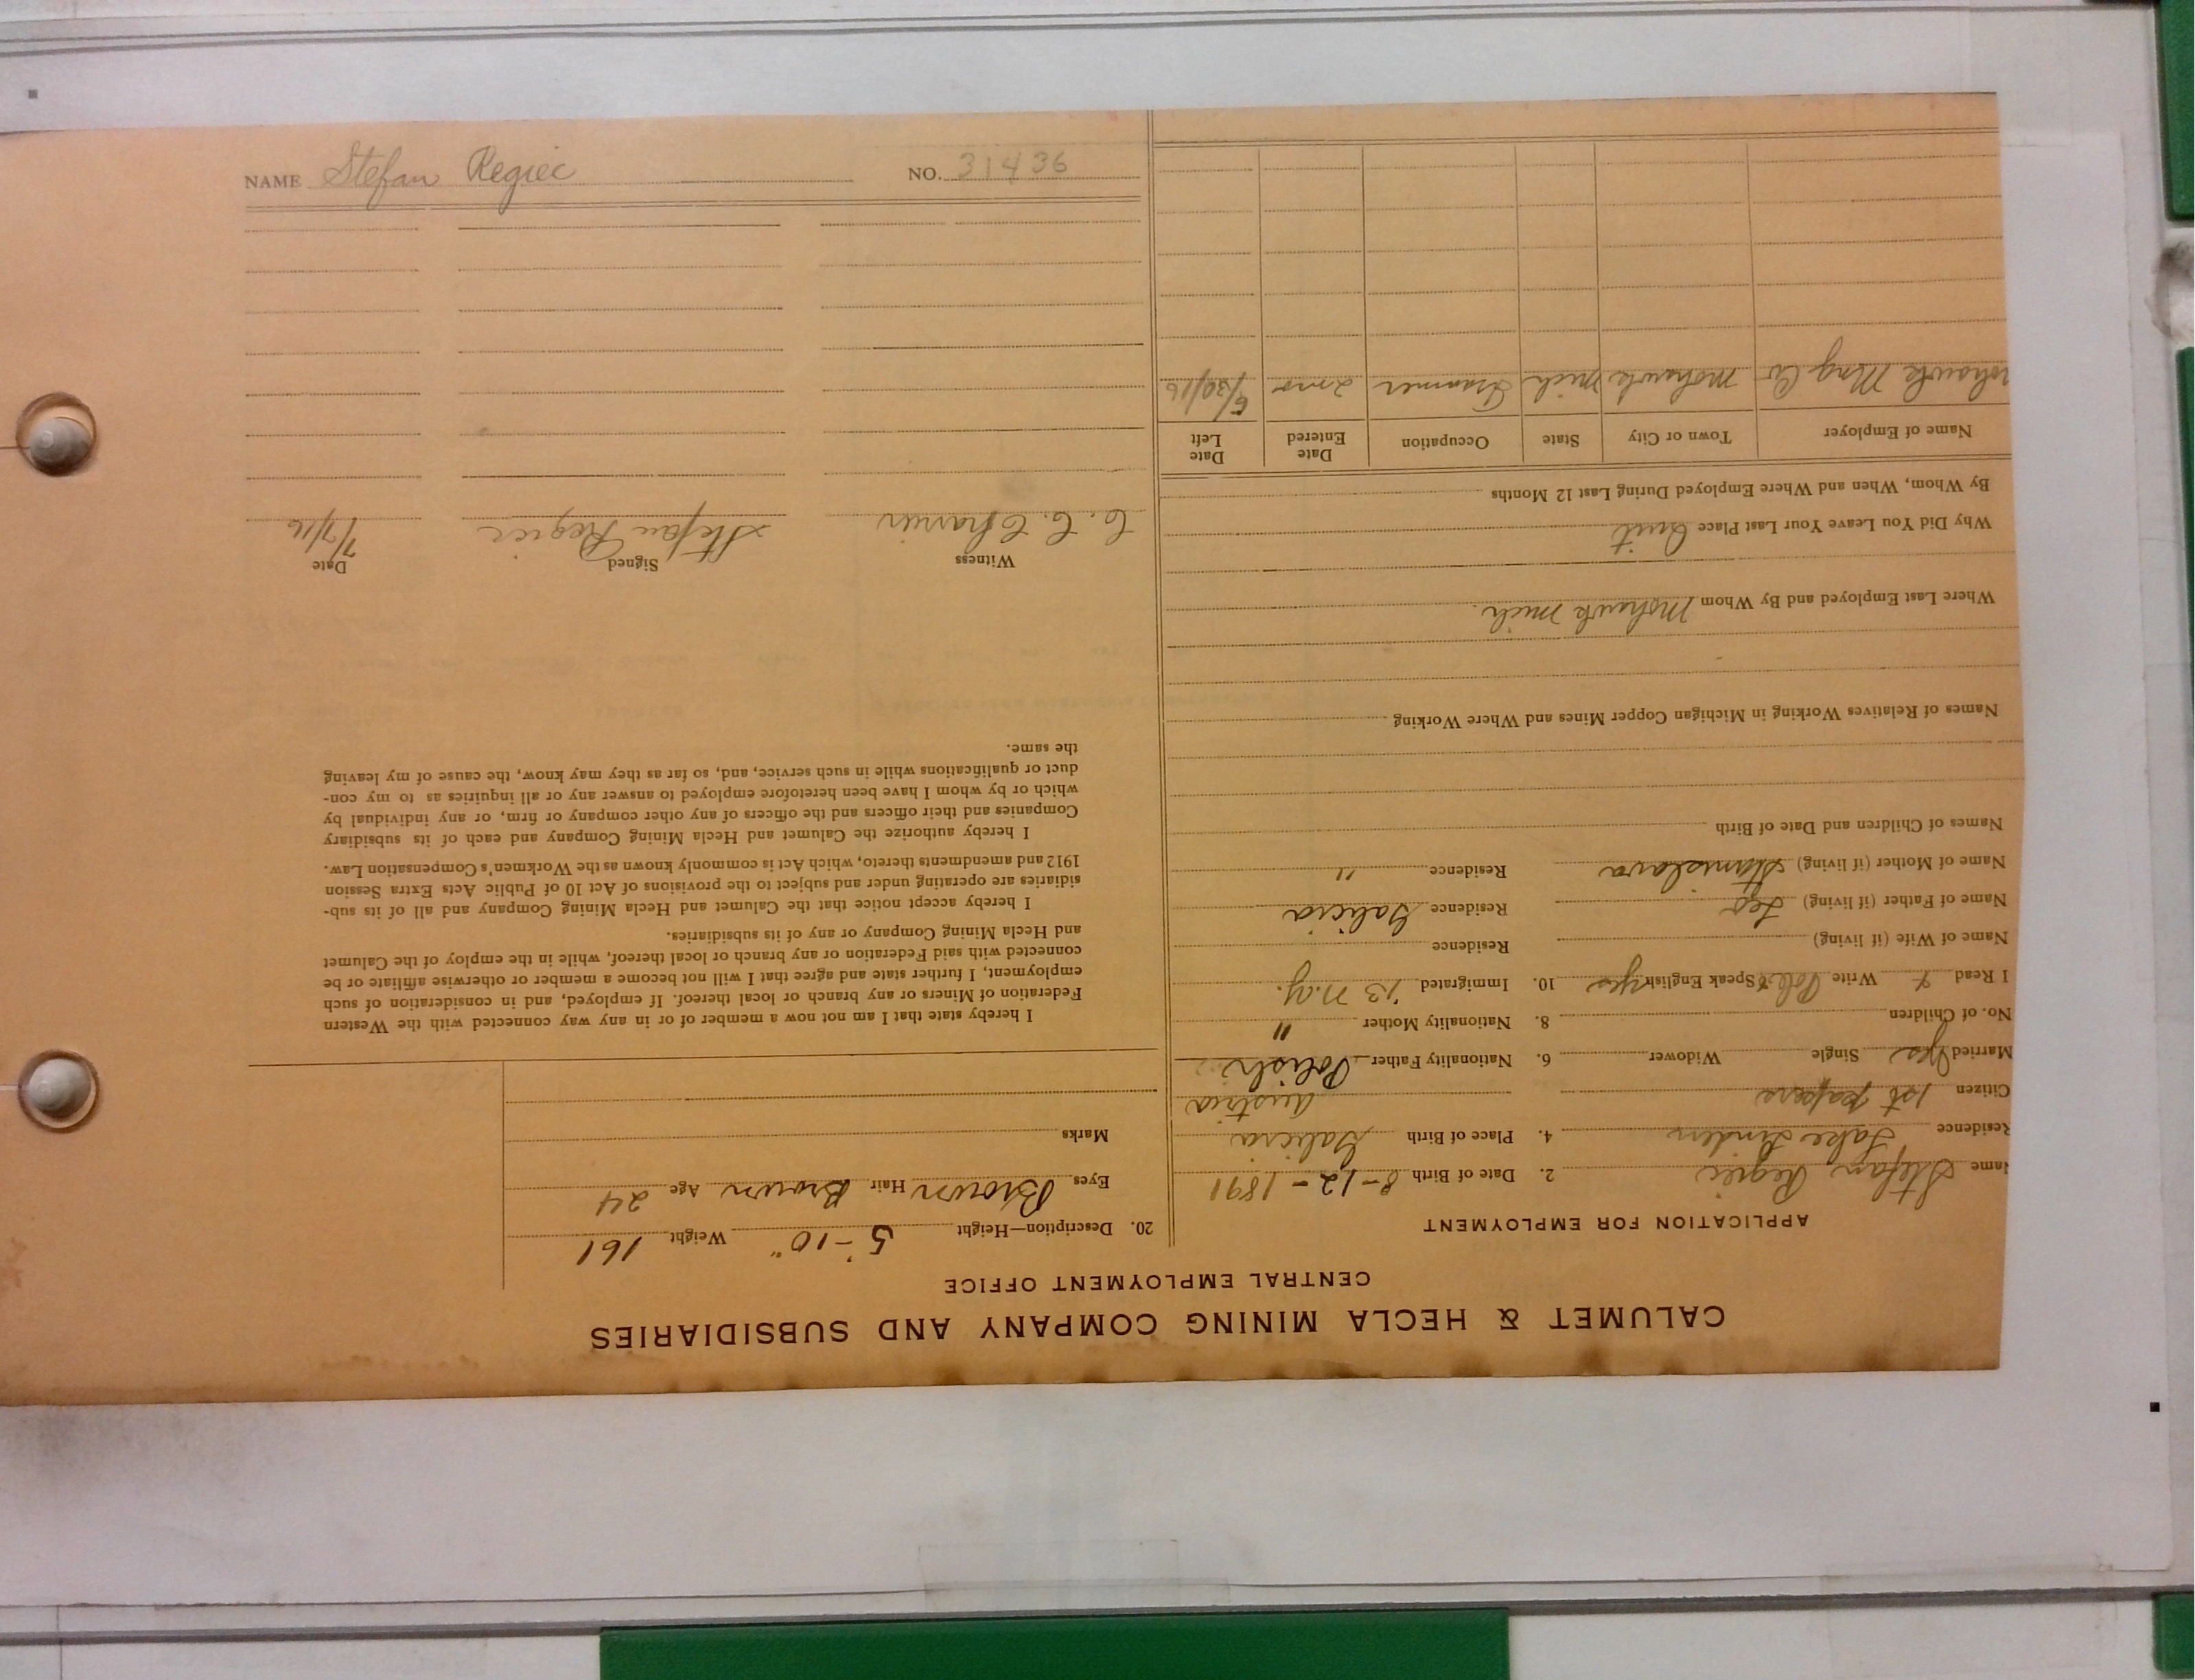 NAME Stefan Regiec NO. 31436
CALUMET & HECLA MINING COMPANY AND SUBSIDIARIES
CENTRAL EMPLOYMENT OFFICE
APPLICATION FOR EMPLOYMENT
Name Stefan Regiec 2. Date of Birth 8-12-1891
Residence Lake Linden 4. Place of Birth Galicia
Citizen 1st papers Austria
Married yes Single Widower 6. Nationality Father Polish
No. of Children 8. Nationality Mother "
I Read Write Speak English yes 10. Immigrated '13 N.Y.
Name of Wife (if living) Residence
Name of Father (if living) Leo Residence Galicia
Name of Mother (if living) Stanislava Residence "
Names of Children and Date of Birth
Names of Relatives Working in Michigan Copper Mines and Where Working
Where Last Employed and By Whom Mohawk Mich.
Why Did You Leave Your Last Place Quit
By Whom, When and Where Employed During Last 12 Months
Name of Employer Town or City State Occupation Date Entered Date Left
ohawk Mng Co Mohawk Mich Trammer 2 mo 6/30/16
20. Description—Height 5'-10" Weight 161
Eyes Brown Hair Brown Age 24
Marks
I hereby state that I am not now a member of or in any way connected with the Western
Federation of Miners or any branch or local thereof. If employed, and in consideration of such
employment, I further state and agree that I will not become a member or otherwise affiliate or be
connected with said Federation or any branch or local thereof, while in the employ of the Calumet
and Hecla Mining Company or any of its subsidiaries.
I hereby accept notice that the Calumet and Hecla Mining Company and all of its sub-
sidiaries are operating under and subject to the provisions of Act 10 of Public Acts Extra Session
1912 and amendments thereto, which Act is commonly known as the Workmen's Compensation Law.
I hereby authorize the Calumet and Hecla Mining Company and each of its subsidiary
Companies and their officers and the officers of any other company or firm, or any individual by
which or by whom I have been heretofore employed to answer any or all inquiries as to my con-
duct or qualifications while in such service, and, so far as they may know, the cause of my leaving
the same.
Witness Signed Date
Stefan Regiec 7/7/16